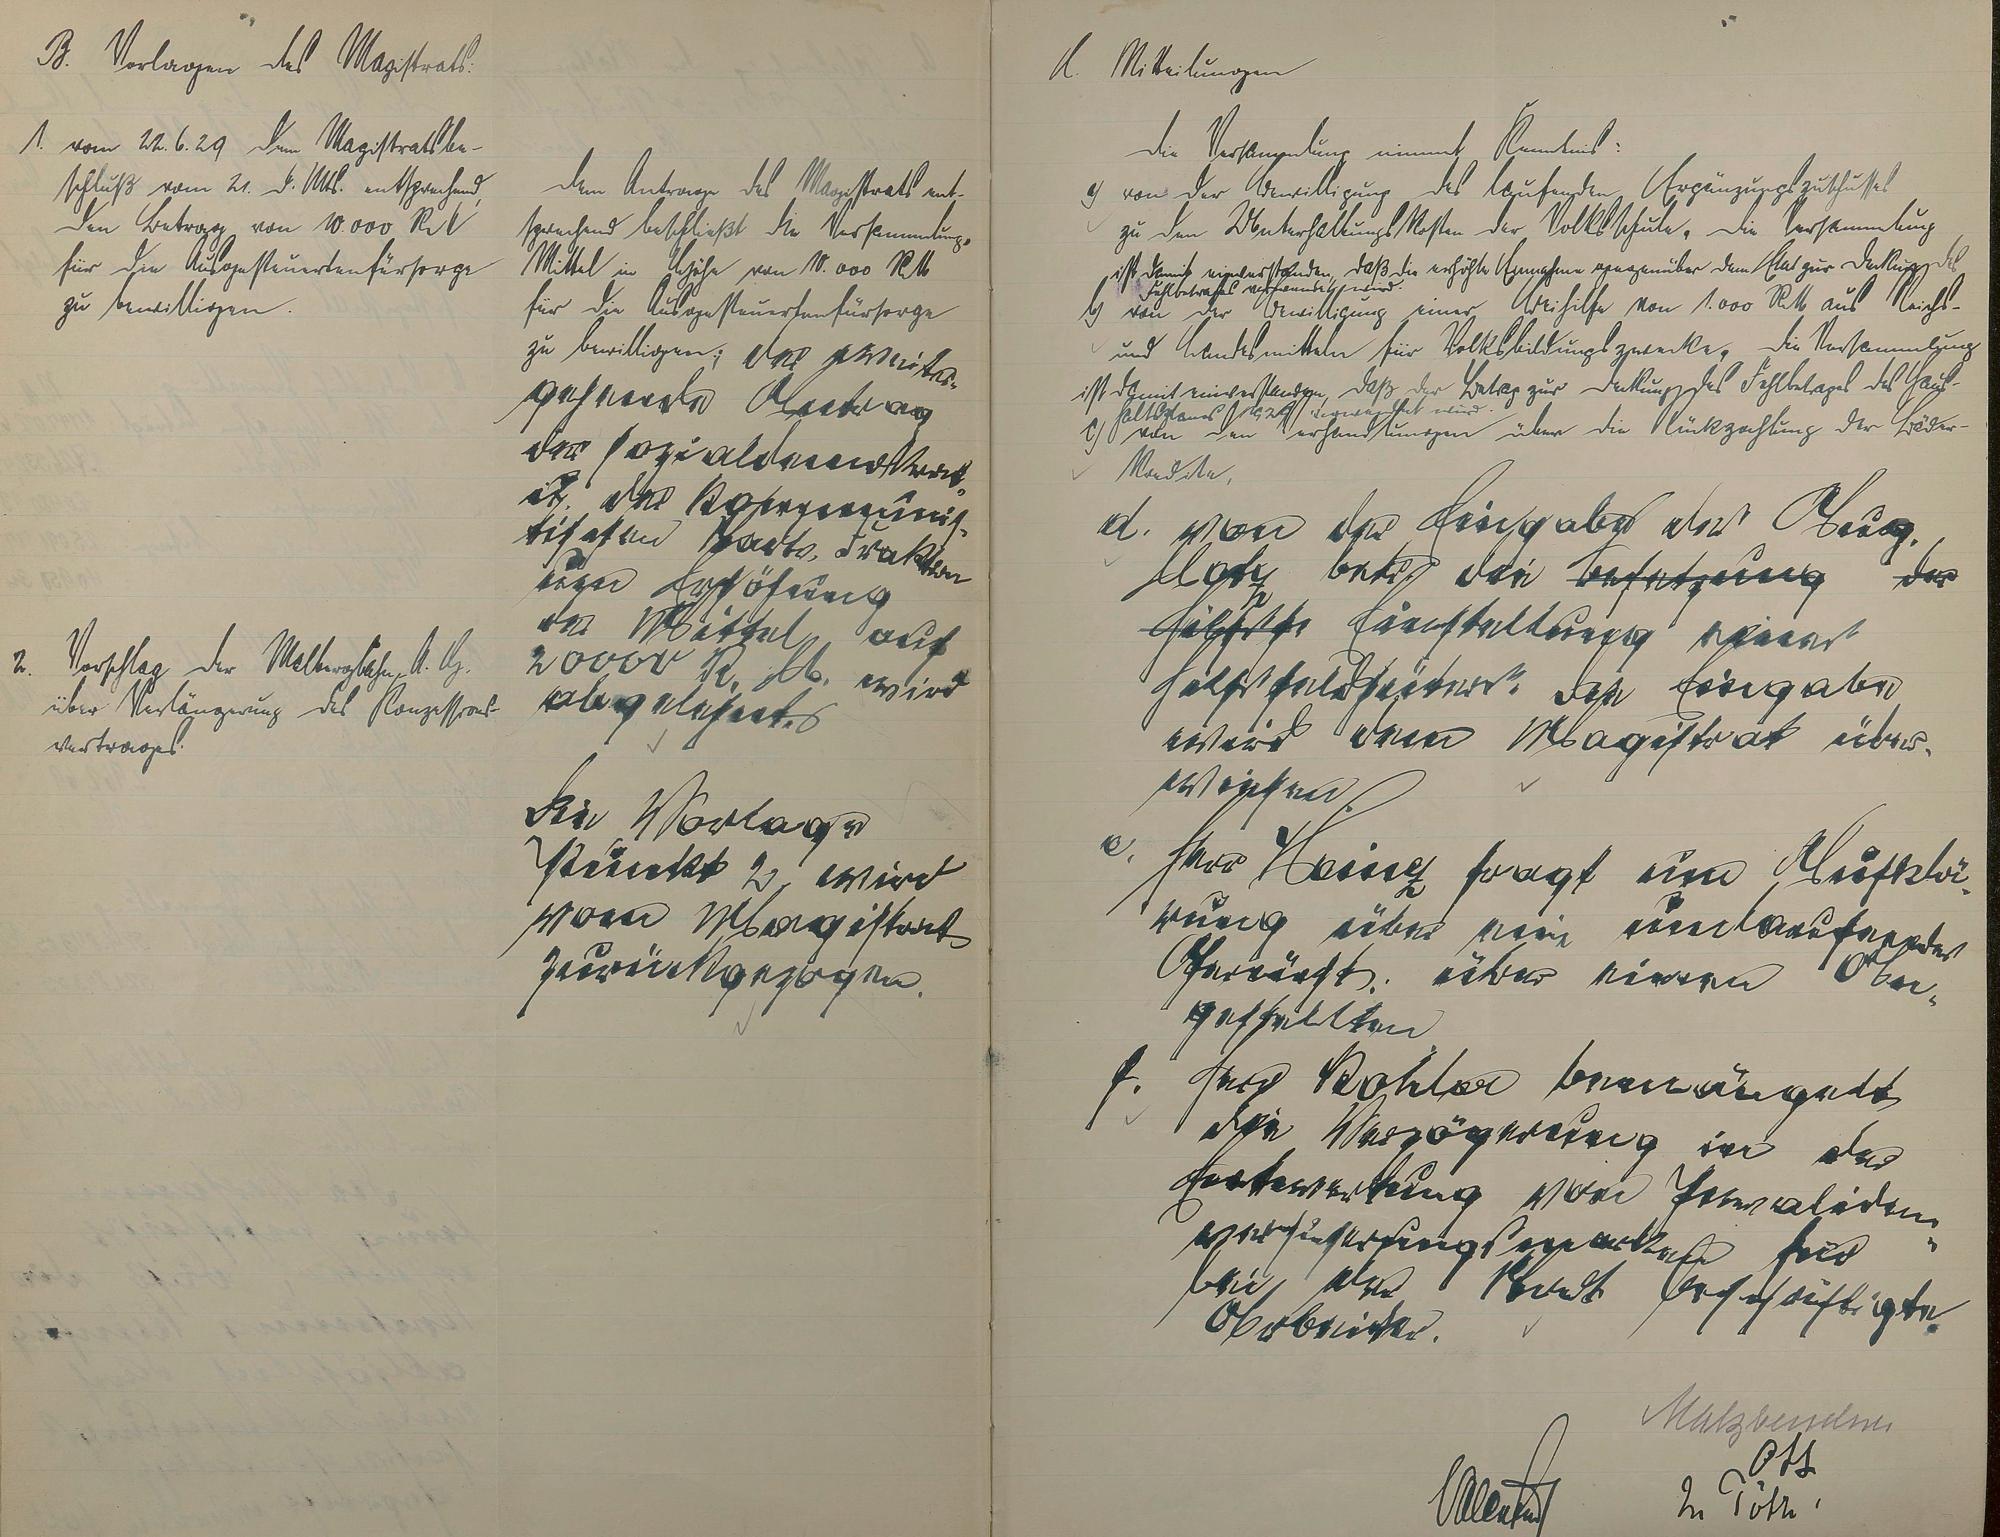 B. Vorlagen des Magistrats:
1. vom 22.6.29 dem Magistratsbe-
schluß vom 21. d. Mts. entsprechend,
den Betrag von 10.000 RM
für die Ausgesteuertenfürsorge
zu bewilligen.
2. Vorschlag der Malbergbahn A. G.
über Verlängerung des Konzessions-
vertrages.
Dem Antrage des Magistrats ent-
sprechend beschließt die Versammlung,
Mittel in Höhe von 10.000 RM
für die Ausgesteuertenfürsorge
zu bewilligen; der weiter-
gehende Antrag
der sozialdemokrat.
u. der kommunis-
tischen Fraktion
um Erhöhung
der Mittel auf
20000 R. M. wird
abgelehnt.
Die Vorlage
Punkt 2 wird
vom Magistrat
zurückgezogen.
Mitteilungen
Die Versammlung nimmt Kenntnis:
a) von der Bewilligung des laufenden Ergänzungszuschusses
zu den Unterhaltungskosten der Volksschule. Die Versammlung
ist damit einverstanden, daß die erhöhte Einnahme gegenüber dem Etat zur Deckung des
Fehlbetrages verwendet wird.
b) von der Bewilligung einer Beihilfe von 1.000 RM aus Reichs-
und Landesmitteln für Volksbildungszwecke. Die Versammlung
ist damit einverstanden, daß der Betrag zur Deckung des Fehlbetrages des Haus-
haltsplanes 1929 verwendet wird.
c) von den Verhandlungen über die Rückzahlung der Bäder-
kredite.
d. von der Eingabe der
betr. die Besetzung der
Einstellung eines
Hilfsfeldhüters. Die Eingabe
wird dem Magistrat über-
wiesen.
e. Herr Heinz fragt um Aufklä-
rung über ein umlaufendes
Gerücht über einen An-
gestellten
f. Herr Kohler bemängelt
die Verzögerung in der
Entwertung von Invaliden-
versicherungsmarken für
bei der Stadt beschäftigte
Arbeiter.
Malzbender
Ott
Valentin